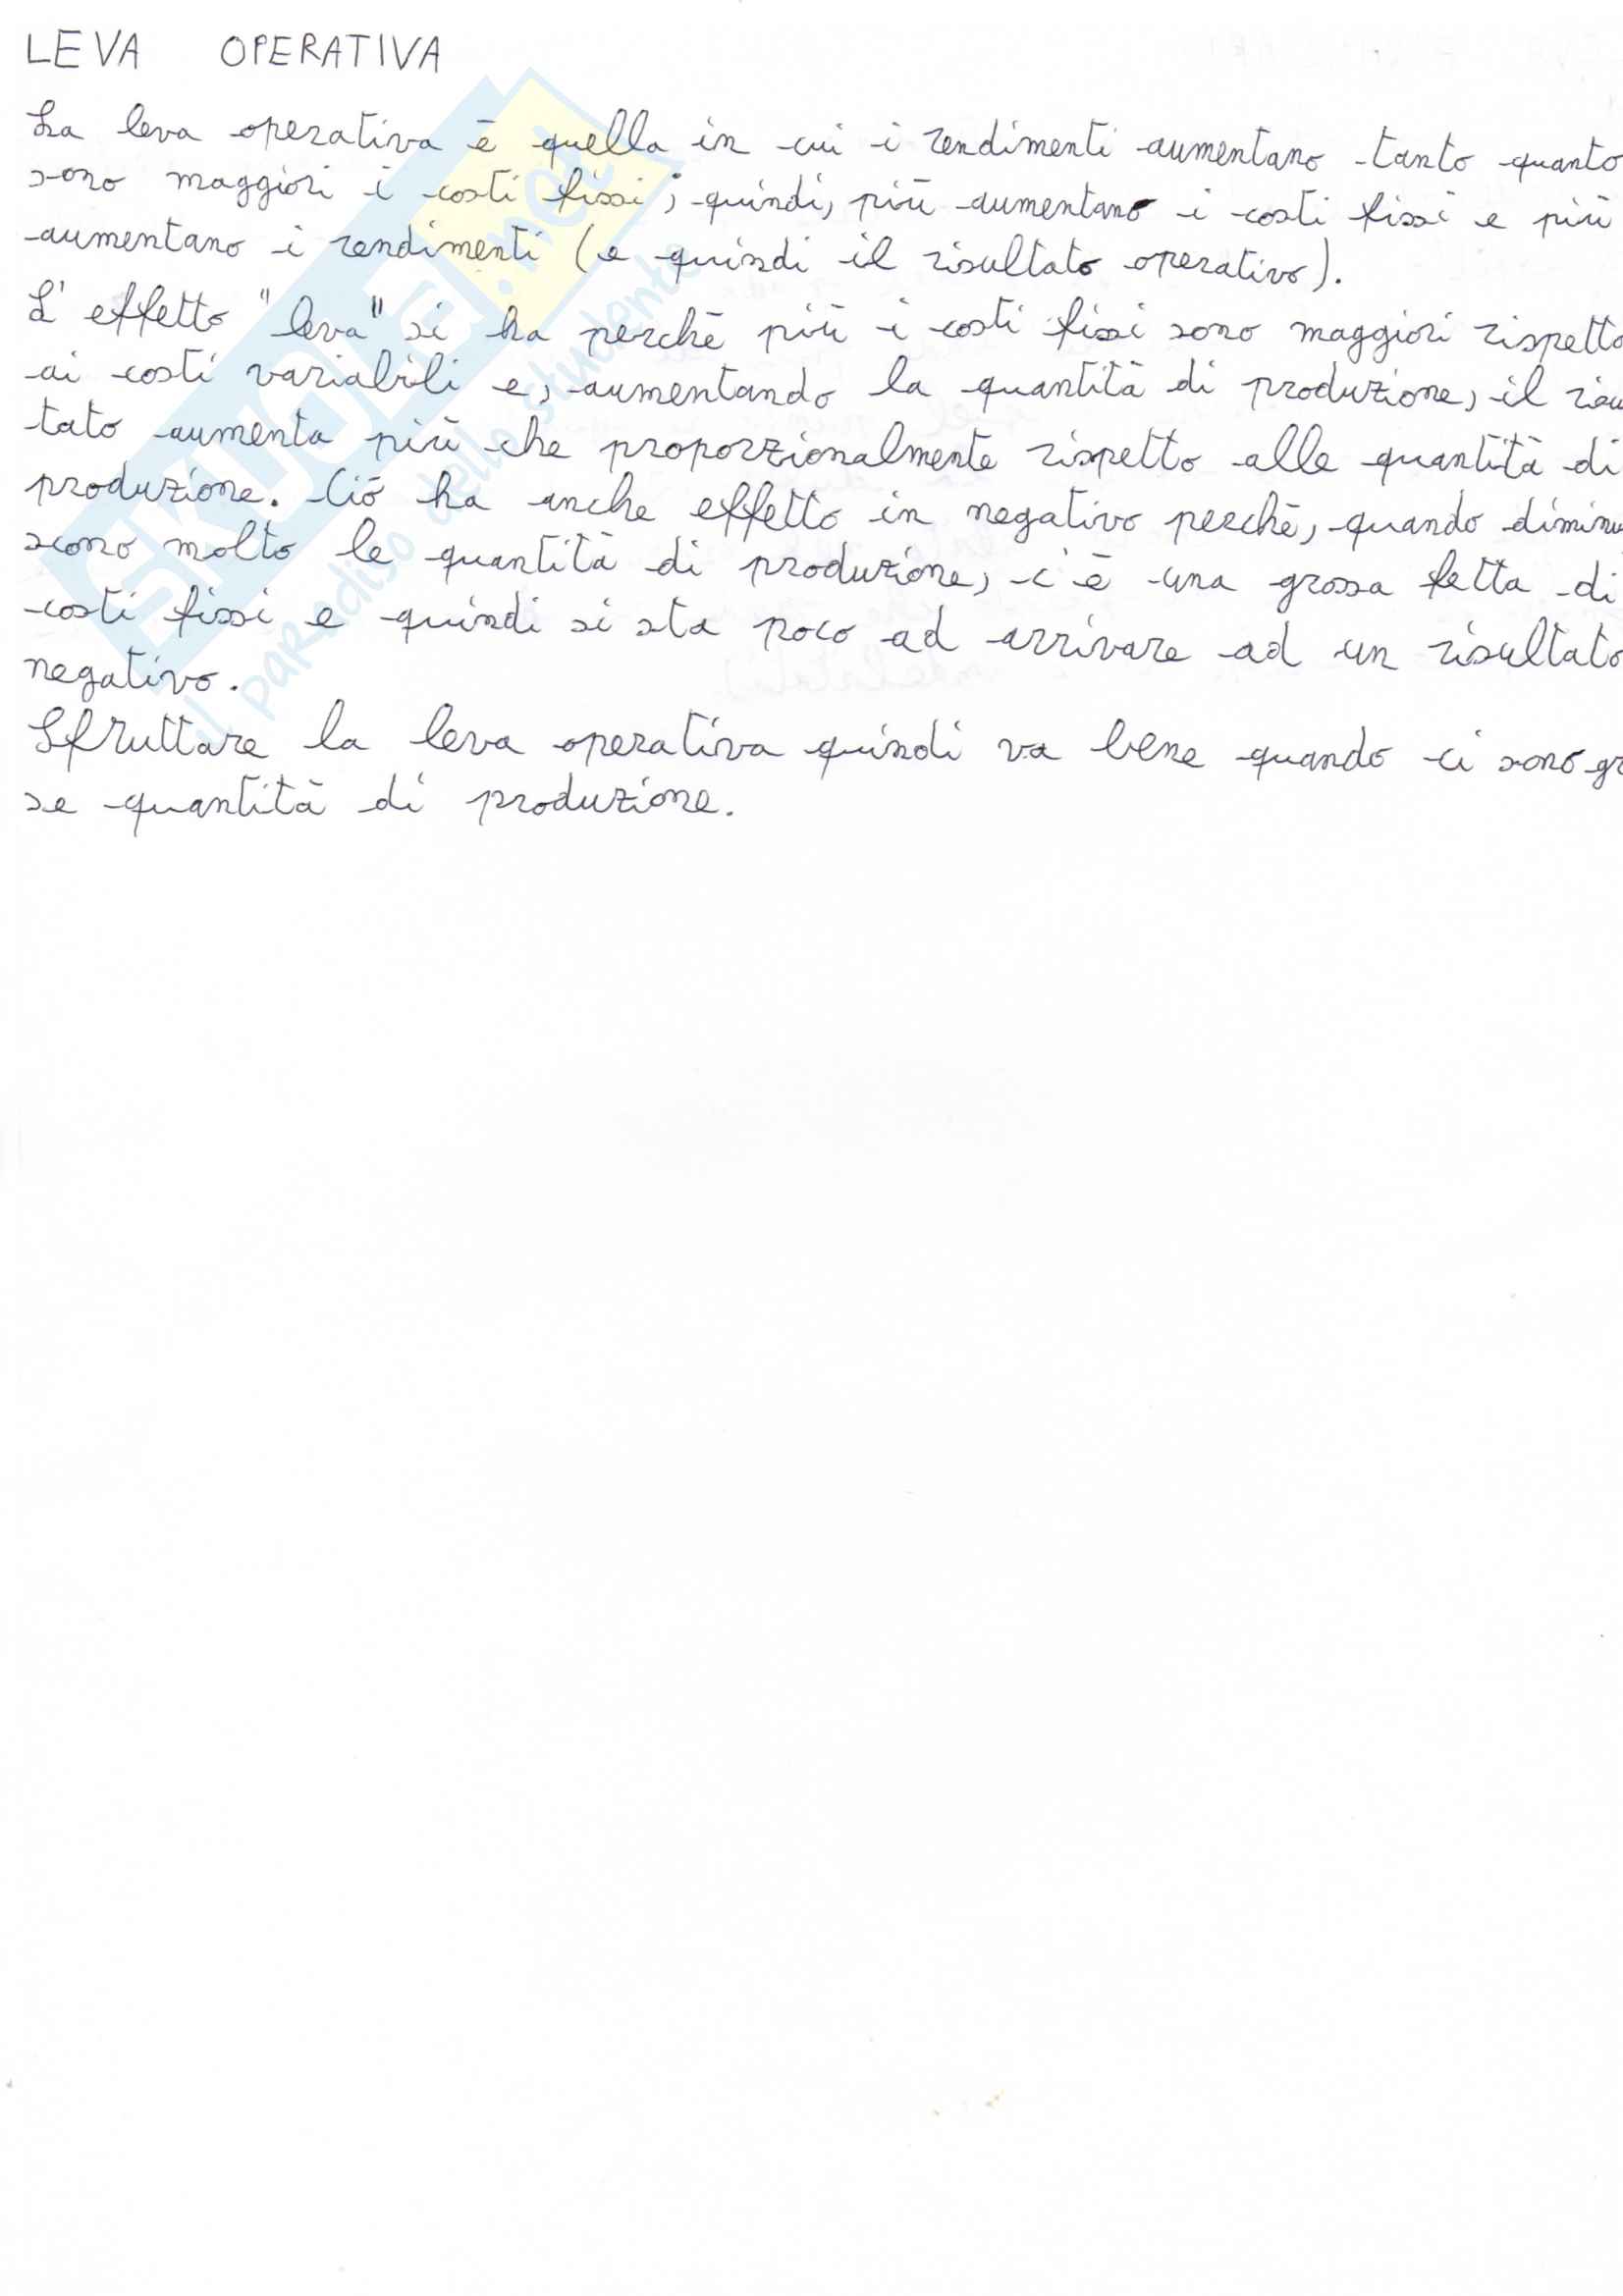 LEVA OPERATIVA
La leva operativa è quella in cui i rendimenti aumentano tanto quanto
sono maggiori i costi fissi; quindi, più aumentano i costi fissi e più
aumentano i rendimenti (e quindi il risultato operativo).
L'effetto "leva" si ha perchè più i costi fissi sono maggiori rispetto
ai costi variabili e, aumentando la quantità di produzione, il risu
tato aumenta più che proporzionalmente rispetto alle quantità di
produzione. Ciò ha anche effetto in negativo perchè, quando diminu
scono molto le quantità di produzione, c'è una grossa fetta di
costi fissi e quindi si sta poco ad arrivare ad un risultato
negativo.
Sfruttare la leva operativa quindi va bene quando ci sono gr
se quantità di produzione.
SKUOLA.net
il paradiso dello studente